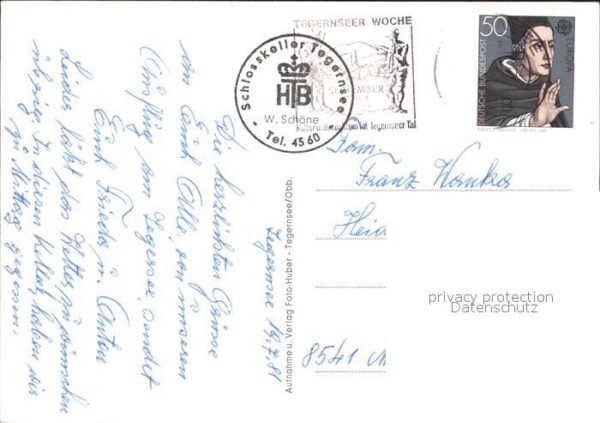 TEGERNSEER WOCHE
SEPTEMBER
Kultur u. Brauchtum im Tegernseer Tal
Schlosskeller Tegernsee
HTB
W. Schöne
- Tel. 4560 -
50
DEUTSCHE BUNDESPOST
EUROPA
Tegernsee 19.7.81
Die herzlichsten Grüsse
an Euch Alle, von unserem
Ausflug am Tegersee, sendet
Euch Frieda u. Anton
Leider läßt das Wetter zu wünschen
übrig. In diesem Keller haben wir
zu Mittag gegessen.
Aufnahme u. Verlag Foto-Huber - Tegernsee/Obb.
Fam.
Franz Wonka
Hei
8541
privacy protection
Datenschutz